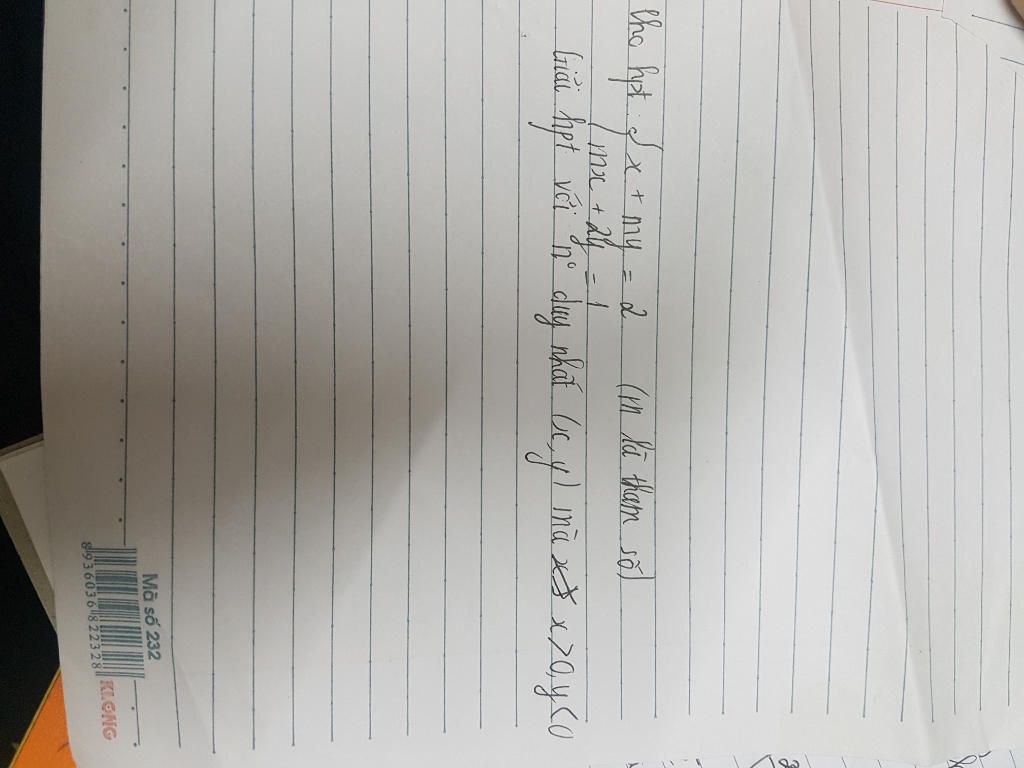 Cho hpt: { x + my = 2 (m là tham số)
mx + 2y = 1
Giải hpt với n° duy nhất (x, y) mà x > 0, y < 0
Mã số 232
8 936036 822328
KLONG